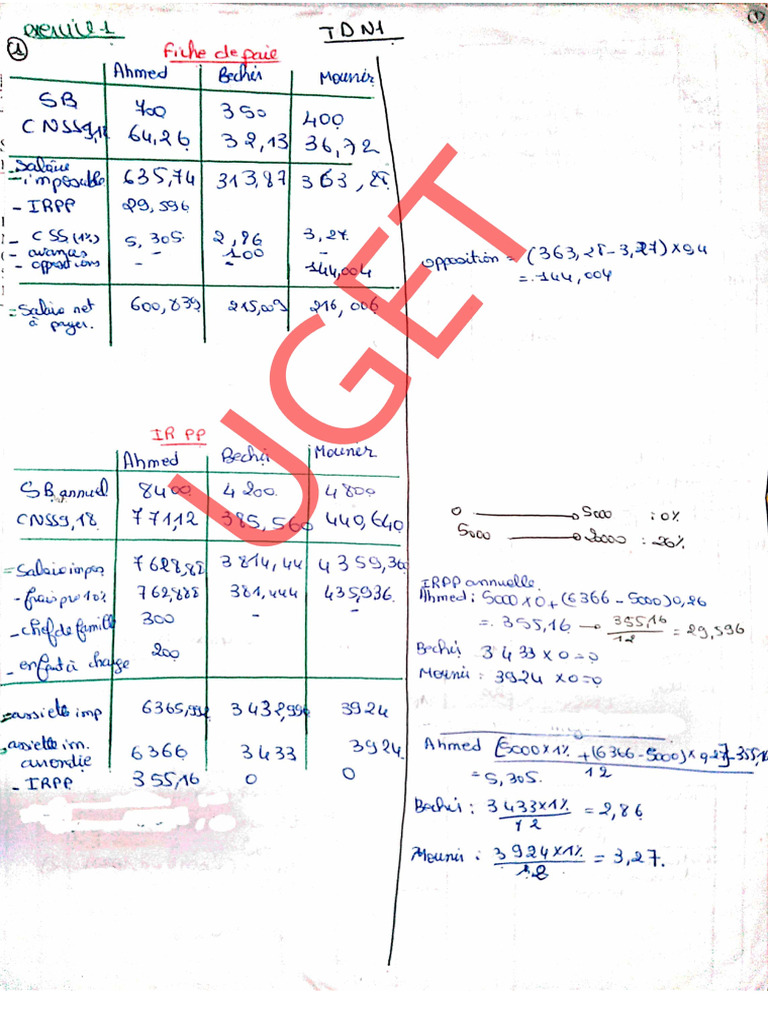 exercice 1
TDN1
1
1
Fiche de paie
Ahmed Bechir Mounir
SB 700 350 400
CNSS9,18 64,26 32,13 36,72
= Salaire imposable 635,74 313,87 363,28
- IRPP 29,596
- CSS (1%) 5,305 2,86 3,27
- avances - 100 -
- oppositions - - 144,004
= Salaire net à payer. 600,839 215,009 216,006
opposition = (363,28-3,27)×0,4
= 144,004
IRPP
Ahmed Bechir Mounir
SB annuel 8400 4200 4800
CNSS9,18 771,12 385,560 440,640
= Salaire impos 7628,88 3814,44 4359,36
- frais pro 10% 762,888 381,444 435,936
- chef de famille 300 - -
- enfant à charge 200
= assiette imp 6365,992 3432,996 3924
assiette im. arrondie 6366 3433 3924
- IRPP 355,16 0 0
0 5000 : 0%
5000 20000 : 26%
IRPP annuelle.
Ahmed : 5000×0+(6366-5000)0,26
= 355,16 → 355,16/12 = 29,596
Bechir 3433×0=0
Mounir : 3924×0=0
Ahmed [5000×1% + (6366-5000)×0,27]-355,16
12
= 5,305.
Bechir : 3433×1%/12 = 2,86
Mounir : 3924×1%/12 = 3,27.
UGET